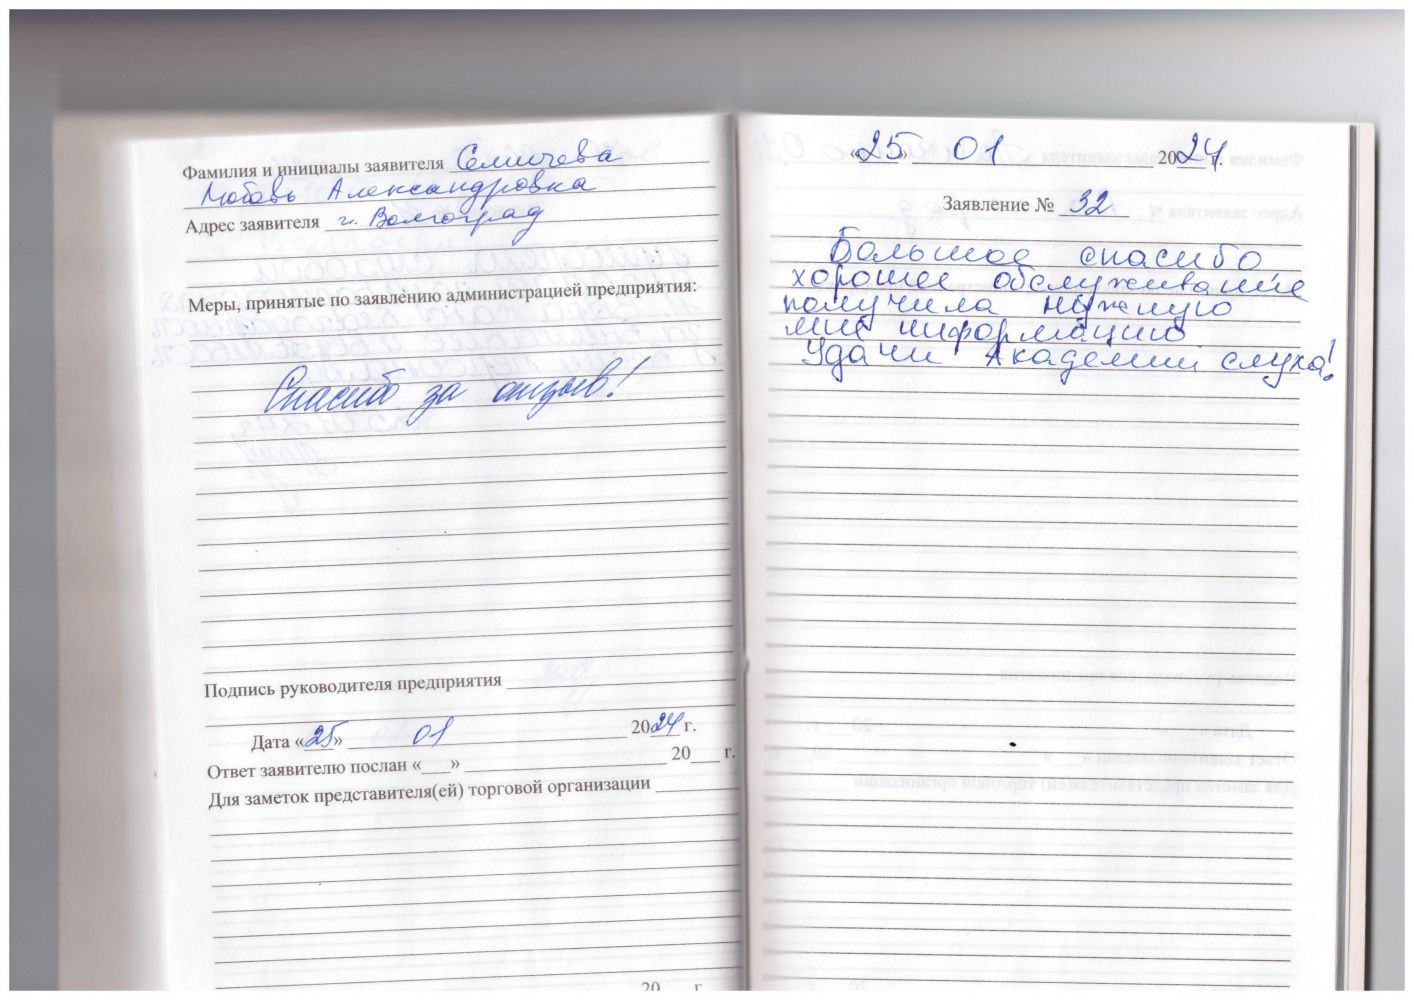 Фамилия и инициалы заявителя Селичева
Любовь Александровка
Адрес заявителя г. Волгоград
Меры, принятые по заявлению администрацией предприятия:
Спасибо за отзыв!
Подпись руководителя предприятия
Дата «25» 01 2024 г.
Ответ заявителю послан «___» 20___ г.
Для заметок представителя(ей) торговой организации
20 г.
«25» 01 2024 г.
Заявление № 32
Большое спасибо
хорошее обслуживание
получила нужную
мне информацию
Удачи Академии слуха!